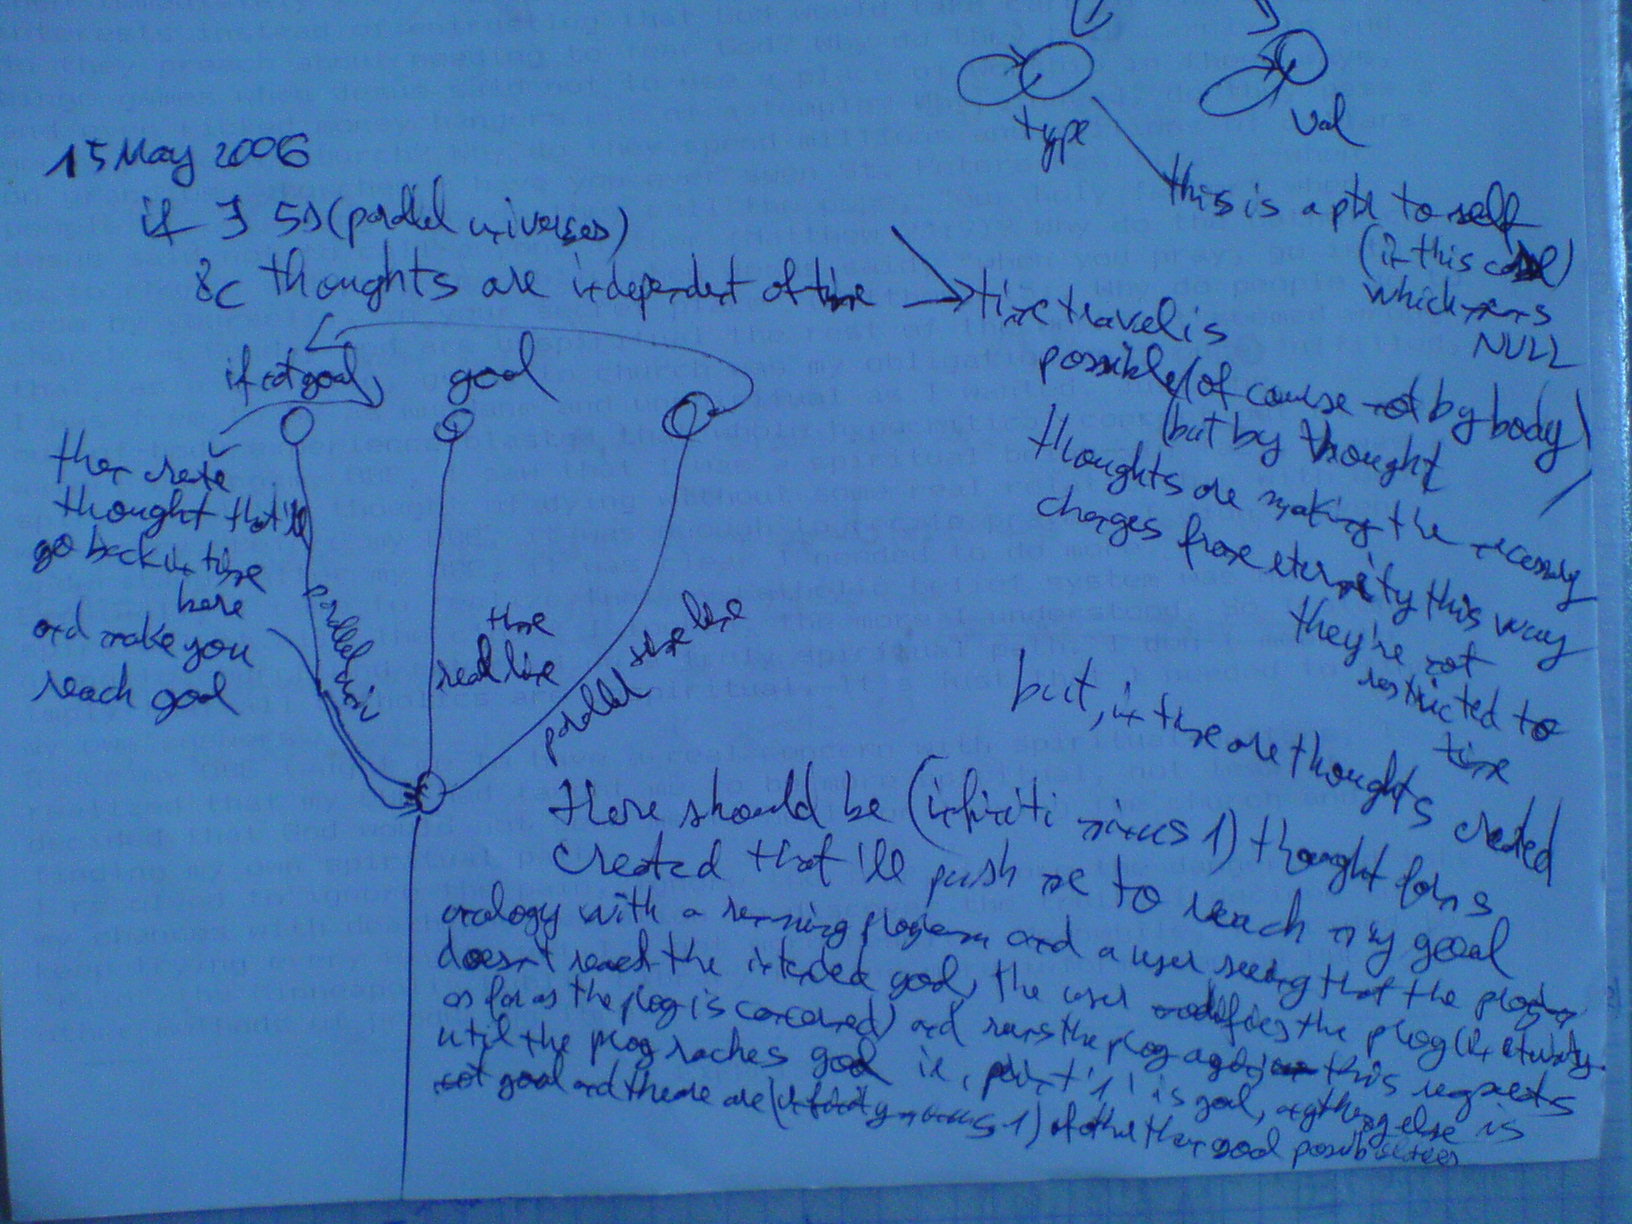 type
val
this is a ptr to self
(in this case)
which means
NULL
15 May 2006
if ∃ 5D (parallel universes)
&c thoughts are independent of time → time travel is
possible (of course not by body)
(but by thought
thoughts are making the necessary
changes from eternity this way
they're not
restricted to
time
if not goal,
goal
then create
thought that'll
go back in time
here
and make you
reach goal
parallel
time
real line
parallel time line
but, in time are thoughts created
there should be (infiniti minus 1) thought forms
created that'll push me to reach my goal
analogy with a running program and a user seeing that the program
doesn't reach the intended goal, the user modifies the prog (in eternity
as far as the prog is concerned) and runs the prog again this repeats
until the prog reaches goal ie, point '1' is goal, anything else is
not goal and there are (infinity minus 1) of other than goal possibilities